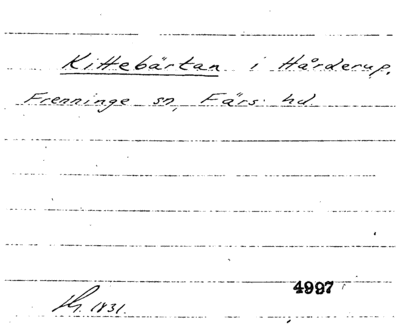 Kittebärtan i Hårderup,
Frenninge sn, Färs hd
4997
1831.